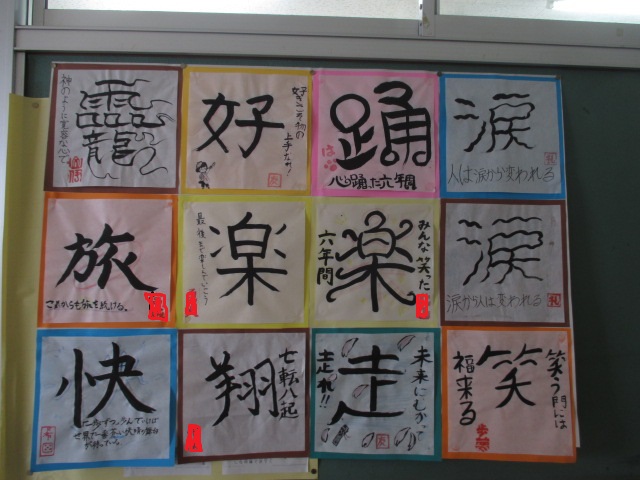 靈龍
神のように寛容な心で。
好
好きこそ物の
上手なれ!
踊
心踊った六年間
涙
人は涙から変われる
旅
これからも旅を続ける。
楽
最後まで楽しんでいこう
楽
みんな笑った
六年間
涙
涙から人は変われる
快
翔
七転八起
走
未来にむかって
走れ!!
笑
笑う門には
福来る